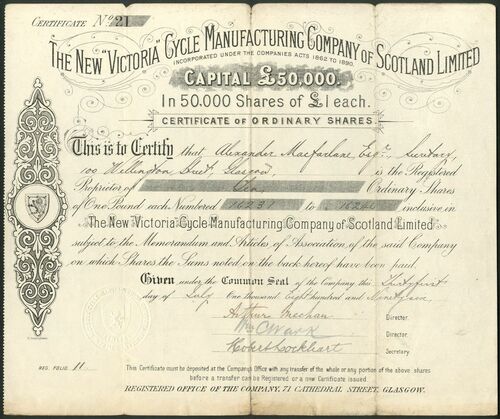 CERTIFICATE No. 21
THE NEW "VICTORIA" CYCLE MANUFACTURING COMPANY OF SCOTLAND LIMITED
INCORPORATED UNDER THE COMPANIES ACTS 1862 TO 1890.
CAPITAL £50,000.
In 50,000 Shares of £1 each.
CERTIFICATE OF ORDINARY SHARES.
This is to Certify that Alexander Macfarlane Esqr.,
100 Wellington Street, Glasgow, is the Registered
Proprietor of Ordinary Shares
of One Pound each Numbered 16231 to inclusive in
The New "Victoria" Cycle Manufacturing Company of Scotland Limited
subject to the Memorandum and Articles of Association of the said Company
on which Shares the Sums noted on the back hereof have been paid.
Given under the Common Seal of the Company this Thirtyfirst
day of July One thousand Eight hundred and
Arthur Mechan Director.
Director.
Robert Lockhart Secretary
REG. FOLIO 11
This Certificate must be deposited at the Company's Office with any transfer of the whole or any portion of the above shares
before a transfer can be Registered or a new Certificate issued.
REGISTERED OFFICE OF THE COMPANY, 71 CATHEDRAL STREET, GLASGOW.